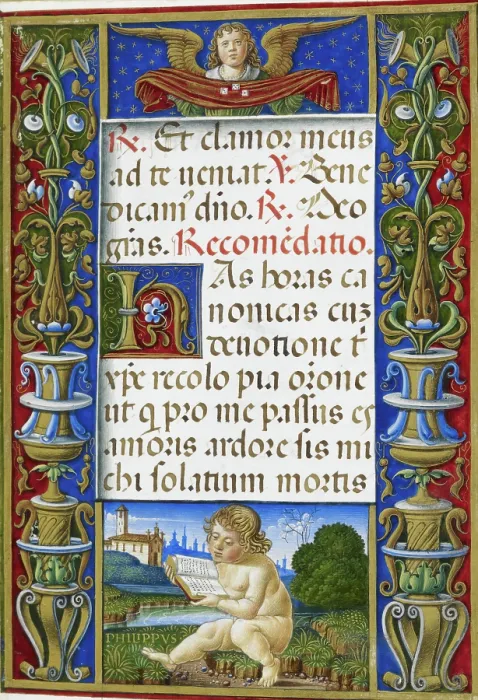 R. Et clamor meus
ad te ueniat. V. Bene
dicam᷒ dño. R. Deo
gr̄as. Recomēdatio.
HAs horas ca
nonicas cuʒ
deuotione t̄
xp̄e recolo pia or̄one
ut q pro me passus es
amoris ardore sis mi
chi solatium mortis
PHILIPPVS